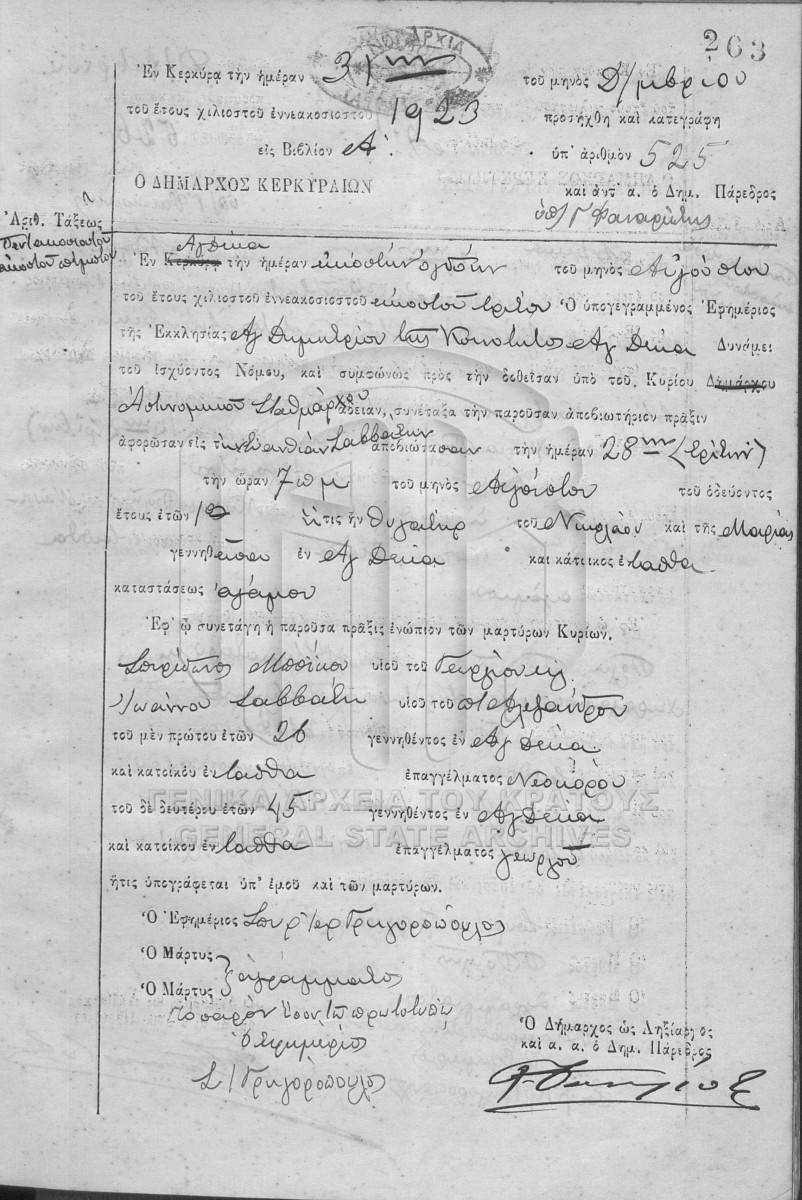 263
ΑΡΧΕΙΑ
Ἐν Κερκύρᾳ τὴν ἡμέραν 31ην τοῦ μηνὸς Δ/μβρίου
τοῦ ἔτους χιλιοστοῦ ἐννεακοσιοστοῦ 1923 προσήχθη καὶ κατεγράφη
εἰς Βιβλίον Α΄. ὑπ' ἀριθμὸν 525
Ο ΔΗΜΑΡΧΟΣ ΚΕΡΚΥΡΑΙΩΝ καὶ ἀντ' α. ὁ Δημ. Πάρεδρος
Ἀριθ. Τάξεως
Πεντακοσιοστοῦ
εἰκοστοῦ πέμπτου
Ἁγ Δέκα
Ἐν Κερκύρᾳ τὴν ἡμέραν εἰκοστὴν ὀγδόην τοῦ μηνὸς Αὐγούστου
τοῦ ἔτους χιλιοστοῦ ἐννεακοσιοστοῦ εἰκοστοῦ τρίτου Ὁ ὑπογεγραμμένος Ἐφημέριος
τῆς Ἐκκλησίας Ἁγ Δημητρίου τῆς Κοινότητος Ἁγ Δέκα Δυνάμει
τοῦ ἰσχύοντος Νόμου, καὶ συμφώνως πρὸς τὴν δοθεῖσαν ὑπὸ τοῦ Κυρίου Δημάρχου
Ἀστυνομικοῦ Σταθμάρχου ἄδειαν, συνέταξα τὴν παροῦσαν ἀποβιωτήριον πρᾶξιν
ἀφορῶσαν εἰς τὴν Εὐανθίαν Σαββατῆν ἀποβιώσασαν τὴν ἡμέραν 28ην (τρίτην)
τὴν ὥραν 7 πμ τοῦ μηνὸς Αὐγούστου τοῦ ὁδεύοντος
ἔτους ἐτῶν ἥτις ἦν θυγάτηρ τοῦ Νικολάου καὶ τῆς Μαρίας
γεννηθεῖσα ἐν Ἁγ Δέκα καὶ κάτοικος ἐνταῦθα
καταστάσεως ἀγάμου
Ἐφ' ᾧ συνετάγη ἡ παροῦσα πρᾶξις ἐνώπιον τῶν μαρτύρων Κυρίων.
Σπυρίδωνος Μποΐκου υἱοῦ τοῦ Γεωργίου
Ἰωάννου Σαββατῆ υἱοῦ τοῦ Ἀλεξάνδρου
τοῦ μὲν πρώτου ἐτῶν 26 γεννηθέντος ἐν Ἁγ Δέκα
καὶ κατοίκου ἐνταῦθα ἐπαγγέλματος Νεοκόρου
τοῦ δὲ δευτέρου ἐτῶν 45 γεννηθέντος ἐν Ἁγ Δέκα
καὶ κατοίκου ἐνταῦθα ἐπαγγέλματος γεωργοῦ
ἥτις ὑπογράφεται ὑπ' ἐμοῦ καὶ τῶν μαρτύρων.
Ὁ Ἐφημέριος Σπυρ Ἱερ Γρηγορόπουλος
Ὁ Μάρτυς
Ὁ Μάρτυς ἀγράμματος
Τὸ παρὸν ἴσον τῷ πρωτοτύπῳ
ὁ ἐφημέριος
Σ Ι Γρηγορόπουλος
Ὁ Δήμαρχος ὡς Ληξίαρχος
καὶ α. α. ὁ Δημ. Πάρεδρος
ΓΕΝΙΚΑ ΑΡΧΕΙΑ ΤΟΥ ΚΡΑΤΟΥΣ
GENERAL STATE ARCHIVES